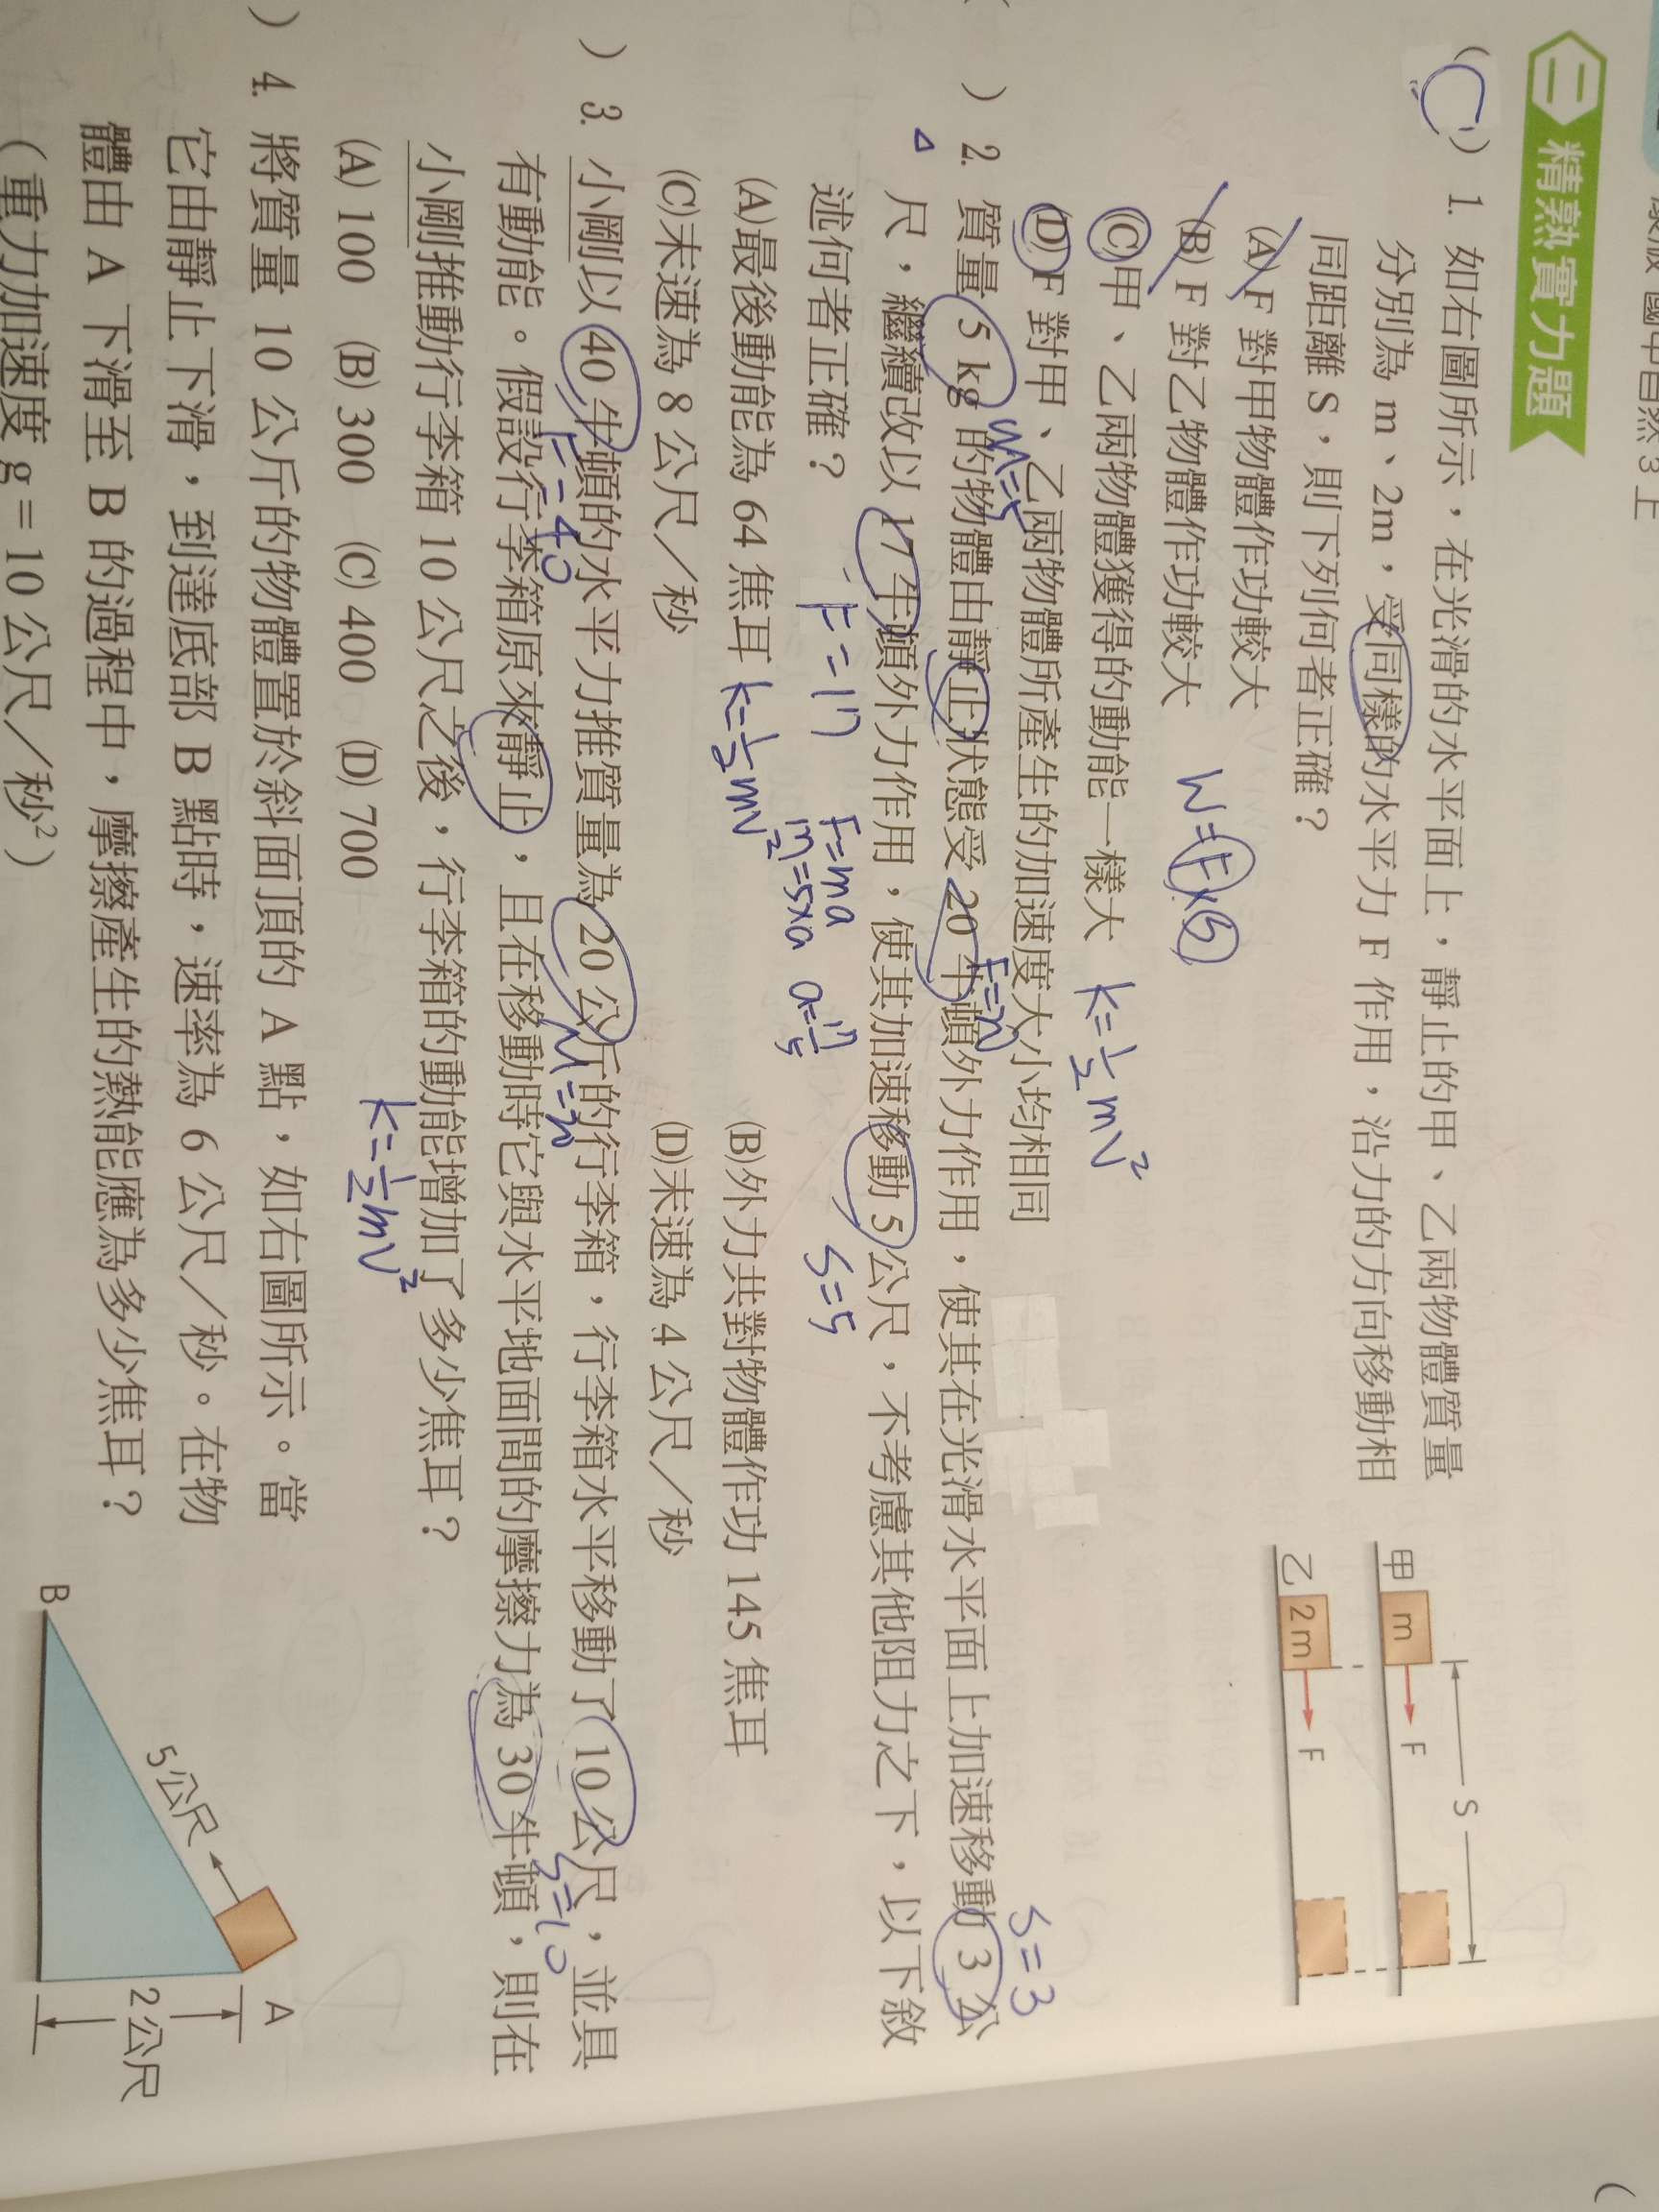 康版 國中自然 3 上
二 精熟實力題
(C) 1. 如右圖所示，在光滑的水平面上，靜止的甲、乙兩物體質量
分別為 m、2m，受同樣的水平力 F 作用，沿力的方向移動相
同距離 S，則下列何者正確？
(A) F 對甲物體作功較大
(B) F 對乙物體作功較大
W=F×S
(C)甲、乙兩物體獲得的動能一樣大
k=½mv²
(D) F 對甲、乙兩物體所產生的加速度大小均相同
甲 m F
S
乙 2m F
) 2. 質量 5 kg 的物體由靜止狀態受 20 牛頓外力作用，使其在光滑水平面上加速移動 3 公
m=5
S=3
尺，繼續改以 17 牛頓外力作用，使其加速移動 5 公尺，不考慮其他阻力之下，以下敘
述何者正確？
F=17
F=ma
17=5×a a=17/5
S=5
(A)最後動能為 64 焦耳 k=½mv² (B)外力共對物體作功 145 焦耳
(C)末速為 8 公尺／秒 (D)末速為 4 公尺／秒
) 3. 小剛以 40 牛頓的水平力推質量為 20 公斤的行李箱，行李箱水平移動了 10 公尺，並具
F=40
S=10
有動能。假設行李箱原來靜止，且在移動時它與水平地面間的摩擦力為 30 牛頓，則在
小剛推動行李箱 10 公尺之後，行李箱的動能增加了多少焦耳？
(A) 100 (B) 300 (C) 400 (D) 700
k=½mv²
) 4. 將質量 10 公斤的物體置於斜面頂的 A 點，如右圖所示。當
它由靜止下滑，到達底部 B 點時，速率為 6 公尺／秒。在物
體由 A 下滑至 B 的過程中，摩擦產生的熱能應為多少焦耳？
（重力加速度 g = 10 公尺／秒²）
A
5公尺
2公尺
B